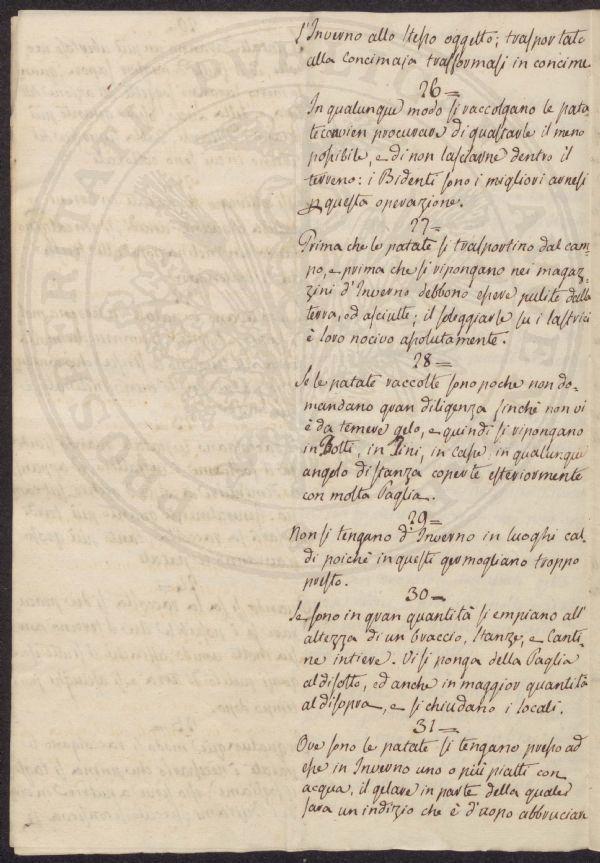 l'Inverno allo stesso oggetto; trasportate
alla Concimaja trasformasi in concime
26=
In qualunque modo si raccolgano le pata
te convien procurare di guastarle il meno
possibile, e di non lasciarne dentro il
terreno: i Bidenti sono i migliori arnesi
p questa operazione.
27=
Prima che le patate si trasportino dal cam=
po, e prima che si ripongano nei magaz=
zini d'Inverno debbono essere pulite dalla
terra, ed asciutte; il soleggiarle su i lastrici
è loro nocivo assolutamente.
28=
Se le patate raccolte sono poche non do=
mandano gran diligenza finchè non vi
è da temere gelo, e quindi si ripongano
in Botti, in Tini, in Casse, in qualunque
angolo di stanza coperte esteriormente
con molta Paglia.
29=
Non si tengano d'Inverno in luoghi cal=
di poichè in questi germogliano troppo
presto.
30=
Se sono in gran quantità si empiano all'
altezza di un braccio, stanze, e Canti=
ne intiere. Vi si ponga della Paglia
al disotto, ed anche in maggior quantità
al disopra, e si chiudano i locali.
31=
Ove sono le patate si tengano presso ad
esse in Inverno uno o più piatti con
acqua, il gelare in parte della quale
sara un indizio che è d'uopo abbruciar